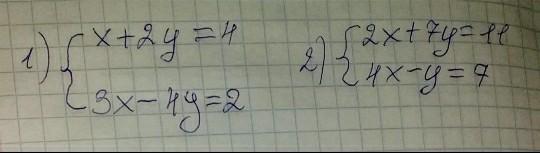 1) { x+2y=4
3x-4y=2
2) { 2x+7y=11
4x-y=7